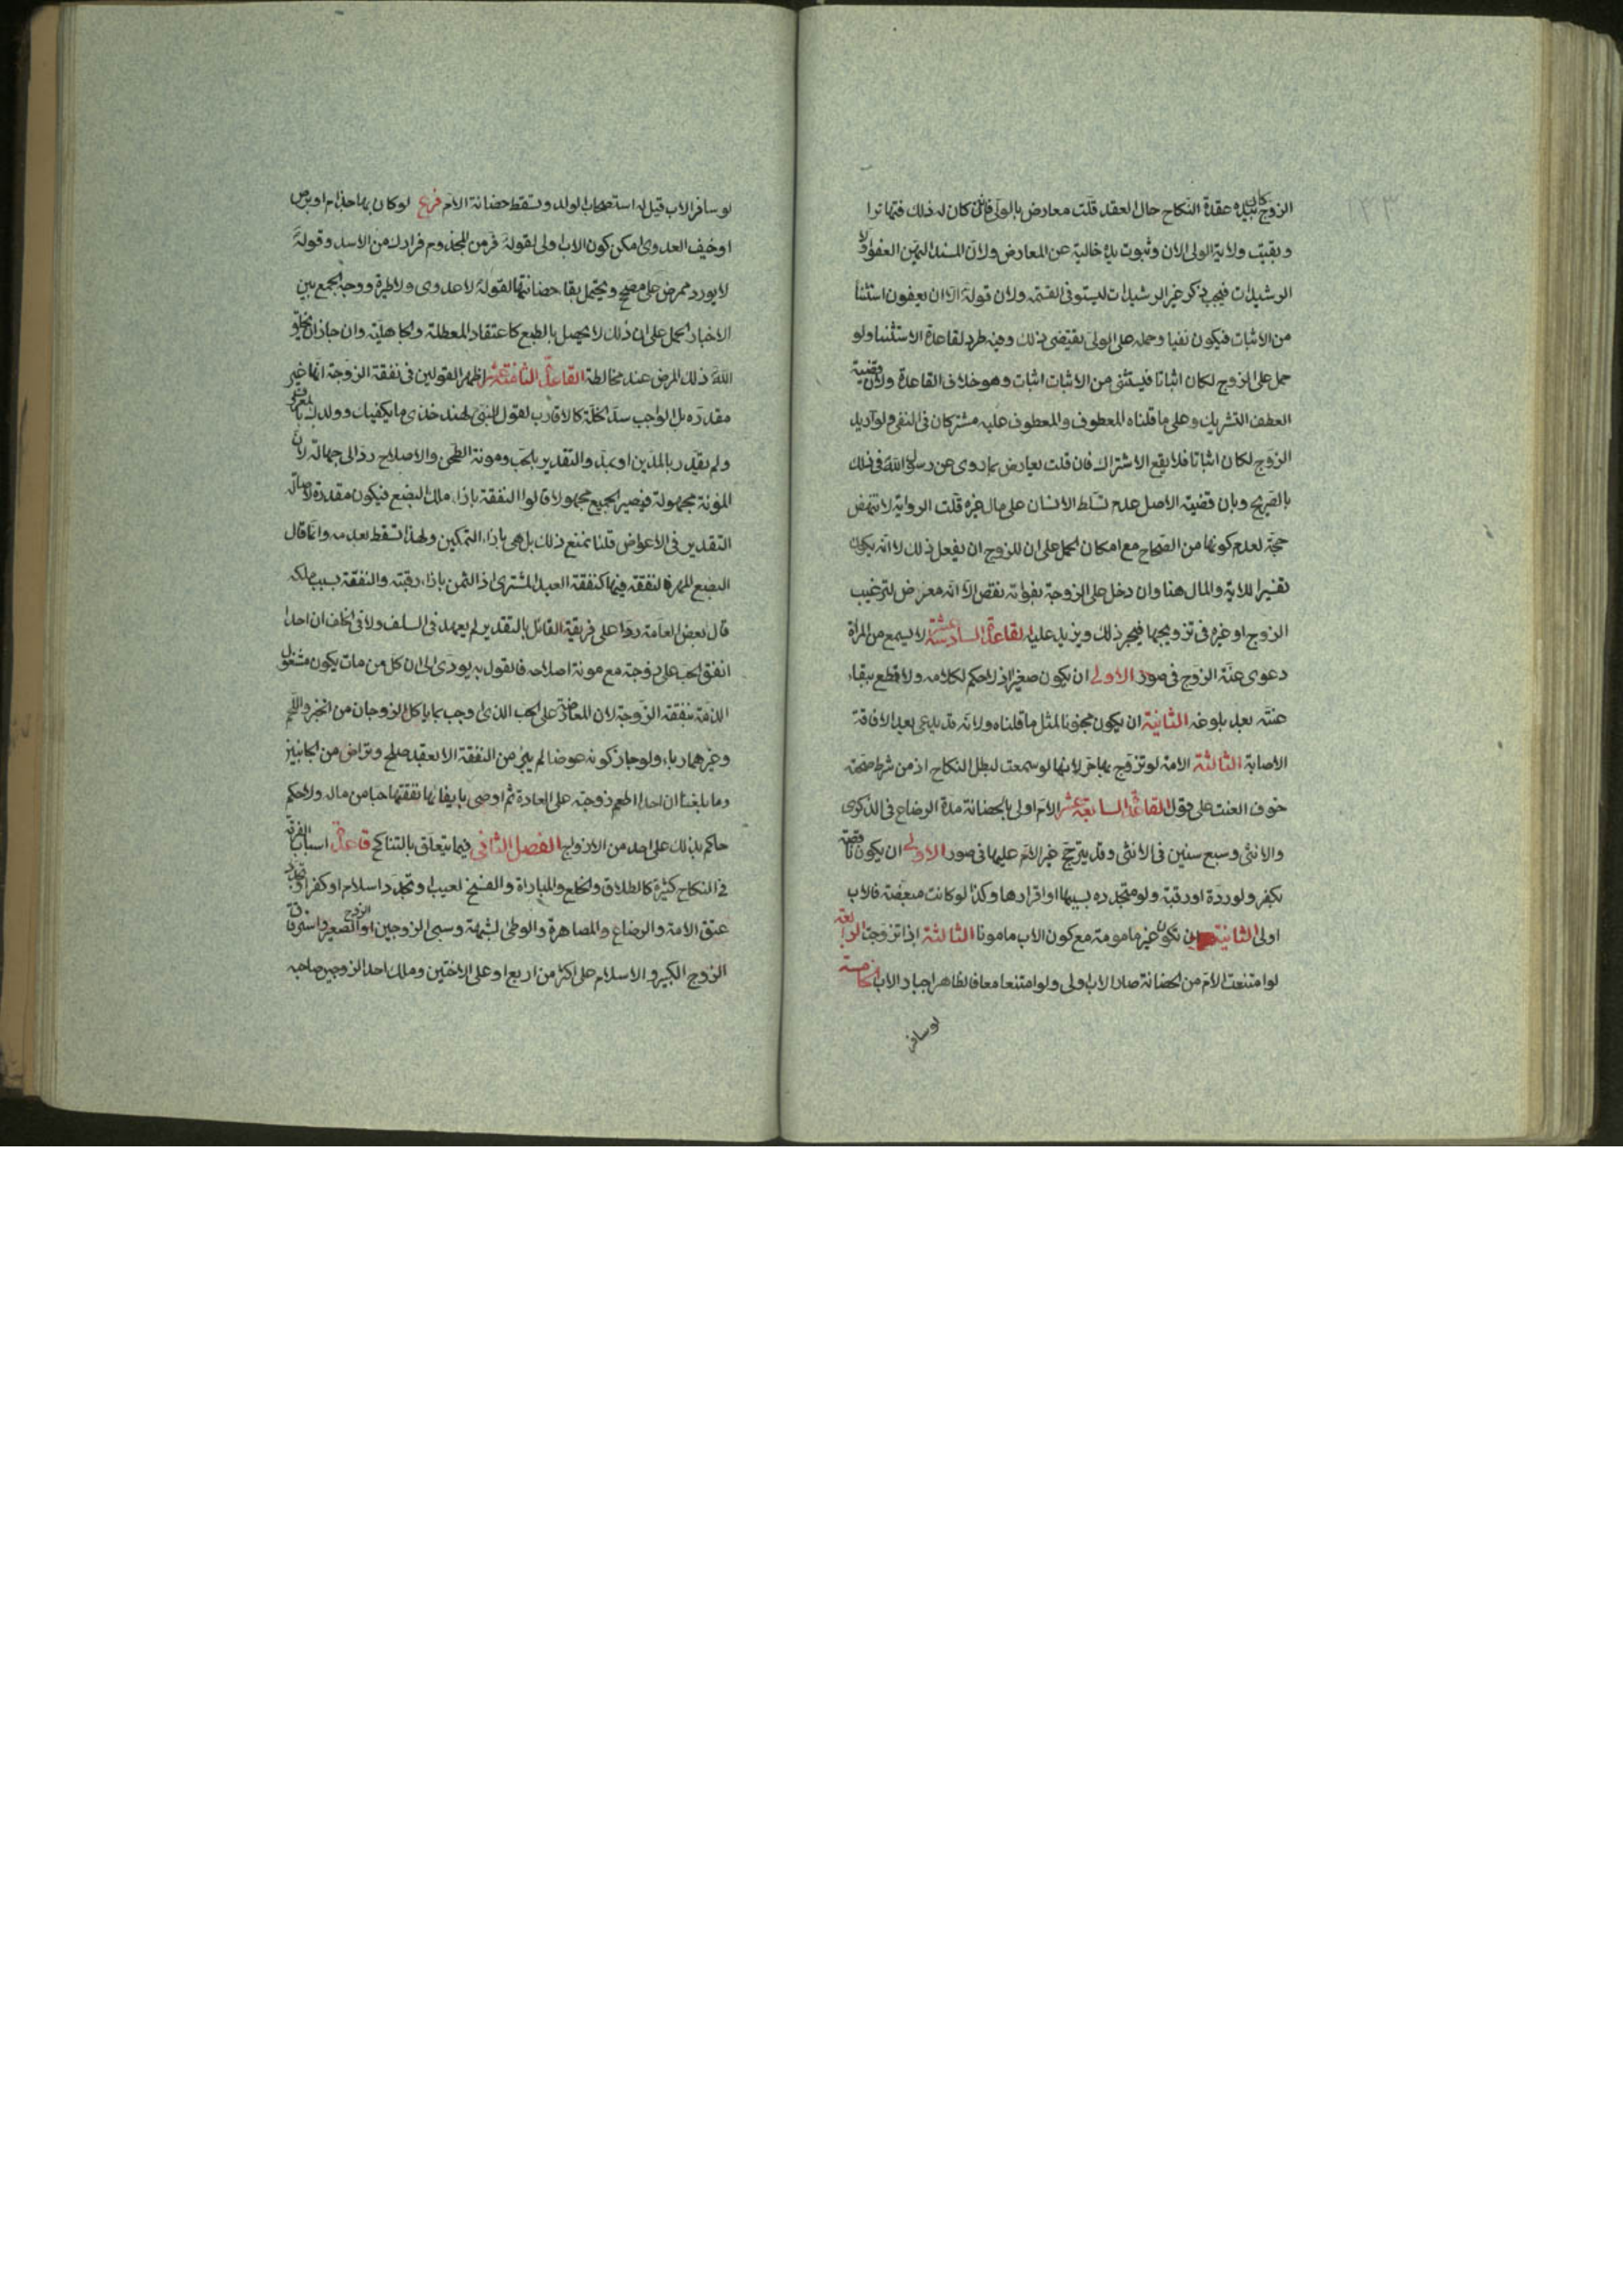 ١٢٣
الزوج كان بيده عقدة النكاح حال العقد قلت معارض بالولي فانه كان له ذلك فتهاترا
وبقيت ولاية الولي الان وثبوت يده خالية عن المعارض ولان المسند اليهن العفو اولا
الرشيدات فيجب ذكر غير الرشيدات ليستوفى القسمة ولان قوله الا ان يعفون استثنا
من الاثبات فيكون نفيا وحمله على الولي يقتضى ذلك وفيه طرد لقاعدة الاستثنا ولو
حمل على الزوج لكان اثباتا فيستثنى من الاثبات اثبات وهو خلاف القاعدة ولان قضية
العطف التشريك وعلى ما قلناه المعطوف والمعطوف عليه مشتركان فى النفى ولو اريد
الزوج لكان اثباتا فلا يقع الاشتراك فان قلت يعارض بما روى عن رسول الله فى ذلك
بالصريح وبان قضية الاصل عدم تسلط الانسان على مال غيره قلت الرواية لا تنهض
حجة لعدم كونها من الصحاح مع امكان الحمل على ان للزوج ان يفعل ذلك لا انه يكون
تفسيرا للاية والمال هنا وان دخل على الزوجة بفواته نقص الا انه معرض لترغيب
الزوج او غيره فى تزويجها فيجبر ذلك ويزيد عليه القاعدة السادسة عشة لا يسمع من المراة
دعوى عنة الزوج فى صور الاولى ان يكون صغيرا اذ لا حكم لكلامه ولا قطع ببقاء
عنته بعد بلوغه الثانية ان يكون مجنونا لمثل ما قلناه ولانه قد يدعى بعد الافاقة
الاصابة الثالثة الامة لو تزوج بها حر لانها لو سمعت لبطل النكاح اذ من شرط صحته
خوف العنت على قول القاعدة السابعة عشر الام اولى بالحضانة مدة الرضاع فى الذكرى
والانثى وسبع سنين فى الانثى وقد يترجح غير الام عليها فى صور الاولى ان يكون ناقصة
بكفر ولو ردة او رقبة ولو متجدده بسبيها او اقرارها وكذا لو كانت مبعضة فالاب
اولى الثانية ان تكون غير مامومة مع كون الاب مامونا الثالثة اذا تزوجت الرابعة
لو امتنعت الام من الحضانة صار الاب اولى ولو امتنعا معا فالظاهر اجبار الاب الخامسة
لو سافر
لو سافر الاب قيل له استصحاب الولد وتسقط حضانة الام فرع لو كان بها جذام او برص
او خيف العدوى امكن كون الاب اولى لقوله فر من المجذوم فرارك من الاسد وقوله
لا يورد ممرض على مصح ويحتمل بقا حضانتها لقوله لا عدوى ولا طيرة ووجه الجمع بين
الاخبار الحمل على ان ذلك لا يحصل بالطبع كاعتقاد المعطلة والجاهلية وان جاز ان يخلق
الله ذلك المرض عند مخالطة القاعدة الثامنة عشر اظهر القولين فى نفقة الزوجة انها غير
مقدره بل الواجب سد الخلة كالاقارب لقول النبى لهند خذى ما يكفيك وولدك بالمعروف
ولم يقدر بالمدين او بمد والتقدير بالحب ومونة الطحن والاصلاح رد الى جهالة لان
المونة مجهولة فيصير الجميع مجهولا قالوا النفقة بازاء ملك البضع فيكون مقدرة لاصالة
التقدير فى الاعواض قلنا نمنع ذلك بل هى بازاء التمكين ولهذا تسقط بعدمه وانما قال
البضع المهر فالنفقة فيها كنفقة العبد المشترى اذ الثمن بازاء رقبته والنفقة بسبب ملكه
قال بعض العامة ردا على فريقه القائل بالتقدير لم يعهد فى السلف ولا فى الخلف ان احدا
انفق الحب على زوجته مع مونة اصلاحه فالقول به يودى الى ان كل من مات يكون مشغول
الذمة بنفقة الزوجة لان المعاوضة على الحب الذى اوجب بما ياكل الزوجان من الخبز واللحم
وغيرهما ربا ولو جاز كونه عوضا لم يبر من النفقة الا بعقد صلح وتراض من الجانبين
وما بلغنا ان احدا اطعم زوجته على العادة ثم اوصى بايفائها نفقتها حبا من ماله ولا حكم
حاكم بذلك على احد من الازواج الفصل الثانى فيما يتعلق بالتناكح قاعدة اسباب الفرقة
فى النكاح كثيرة كالطلاق والخلع والمباراة والفسخ لعيب او تجدد اسلام او كفر او تجدد
عتق الامة والرضاع والمصاهرة والوطى لشبهة وسبى الزوجين او الزوج الصغير واسترقاق
الزوج الكبير والاسلام على اكثر من اربع او على الاختين وملك احد الزوجين صاحبه